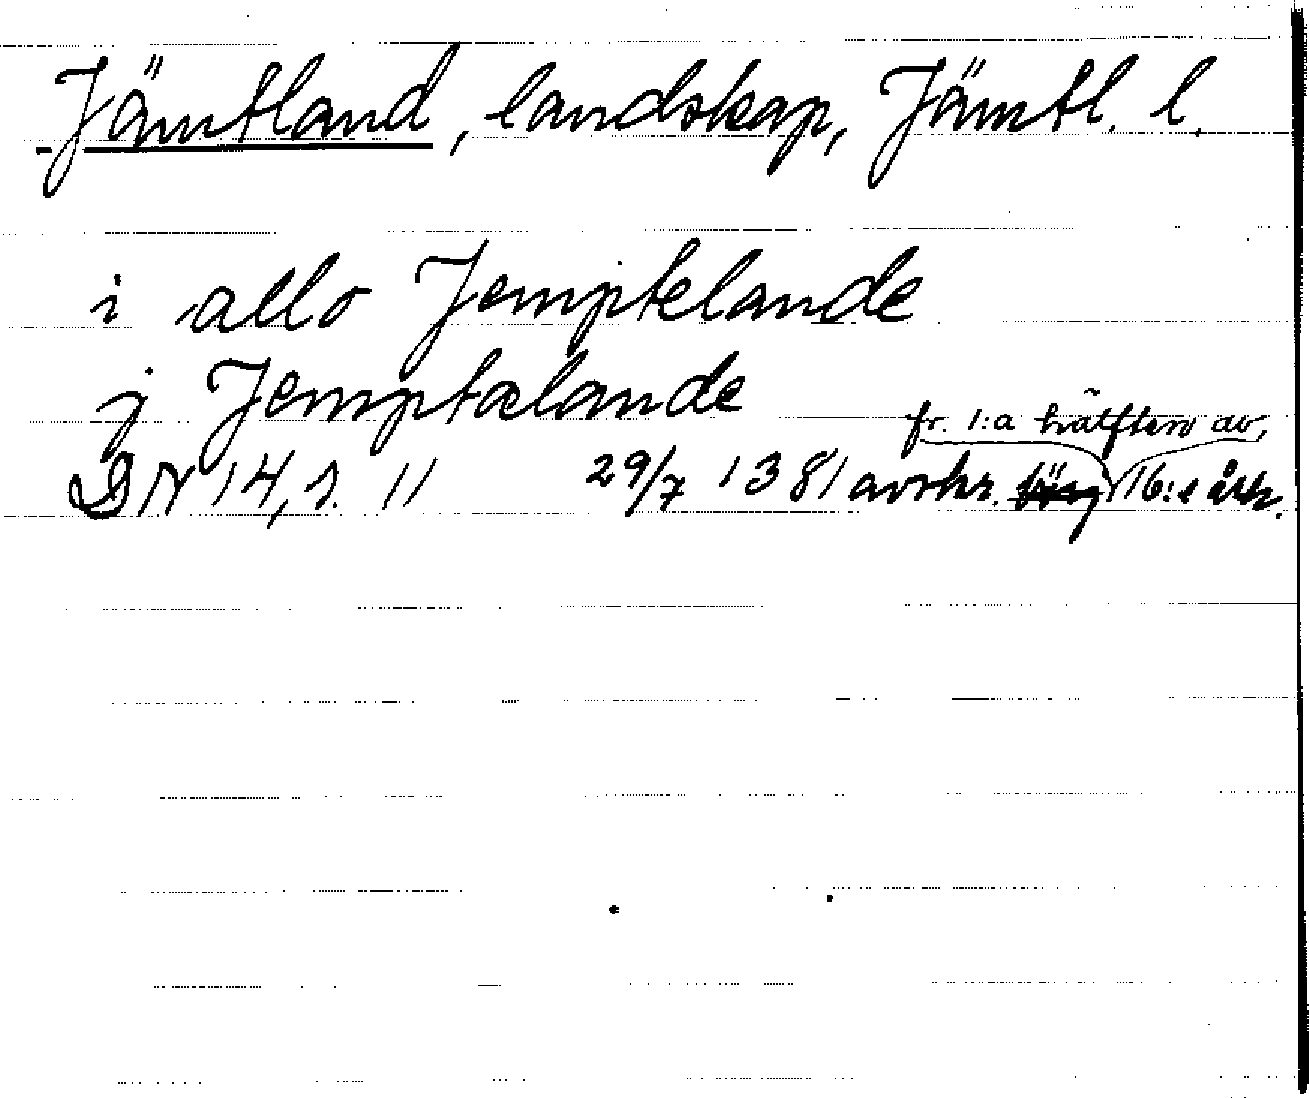 Jämtland, landskap, Jämtl. l.
i allo Jemptelande
j Jemptælande
DN 14, s. 11 29/7 1381 avskr. fr. 1:a hälften av 16:e årh.